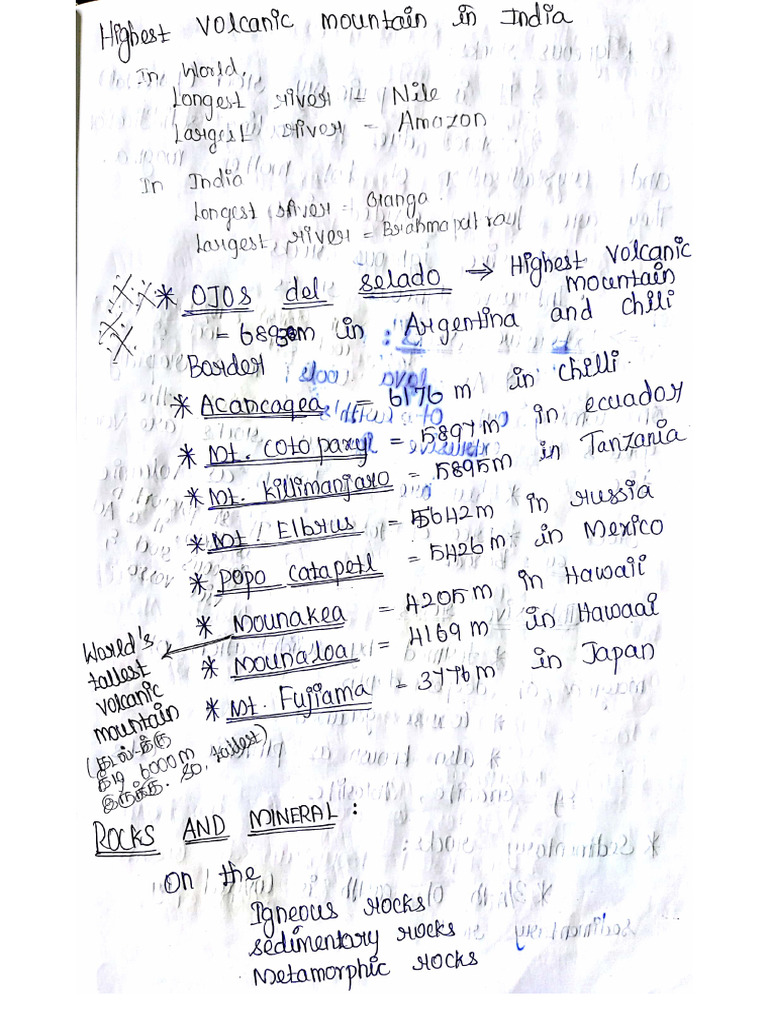 Highest volcanic mountain in India
In World,
Longest river = Nile
Largest river = Amazon
In India
Longest river = Ganga
Largest river = Brahmaputray
* OJOS del selado → Highest volcanic mountain
= 6893m in Argentina and Chili
Border
* Acancagea = 6176 m in chilli
* Mt. coto paxy = 5897 m in ecuador
* Mt. killimanjaro = 5895m in Tanzania
* Mt. Elbrus = 5642m in russia
* popo catapetl = 5426 m in Mexico
* Mounakea = 4205 m in Hawaii
* Mounaloa = 4169 m in Hawaai
* Mt. Fujiama - 3776m in Japan
World's
tallest
volcanic
mountain
6000m
tallest)
ROCKS AND MINERAL:
On the
Igneous rocks
sedimentary rocks
Metamorphic rocks